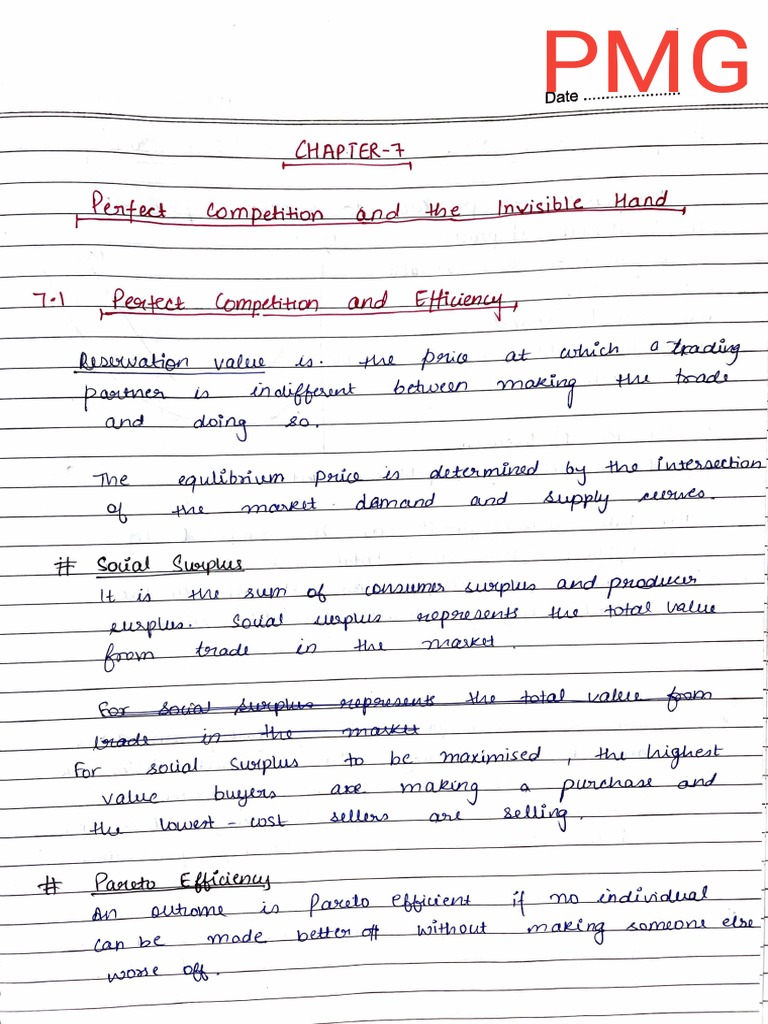 PMG
Date ........................
CHAPTER-7
Perfect Competition and the Invisible Hand
7.1 Perfect Competition and Efficiency
Reservation value is. the price at which a trading
partner is indifferent between making the trade
and doing so.
The equlibrium price is determined by the intersection
of the market demand and supply curves.
# Social Surplus
It is the sum of consumer surplus and producer
surplus. Social surplus represents the total value
from trade in the market.
For social surplus represents the total value from
trade in the market
For social surplus to be maximised, the highest
value buyers are making a purchase and
the lowest-cost sellers are selling.
# Pareto Efficiency
An outcome is Pareto efficient if no individual
can be made better off without making someone else
worse off.